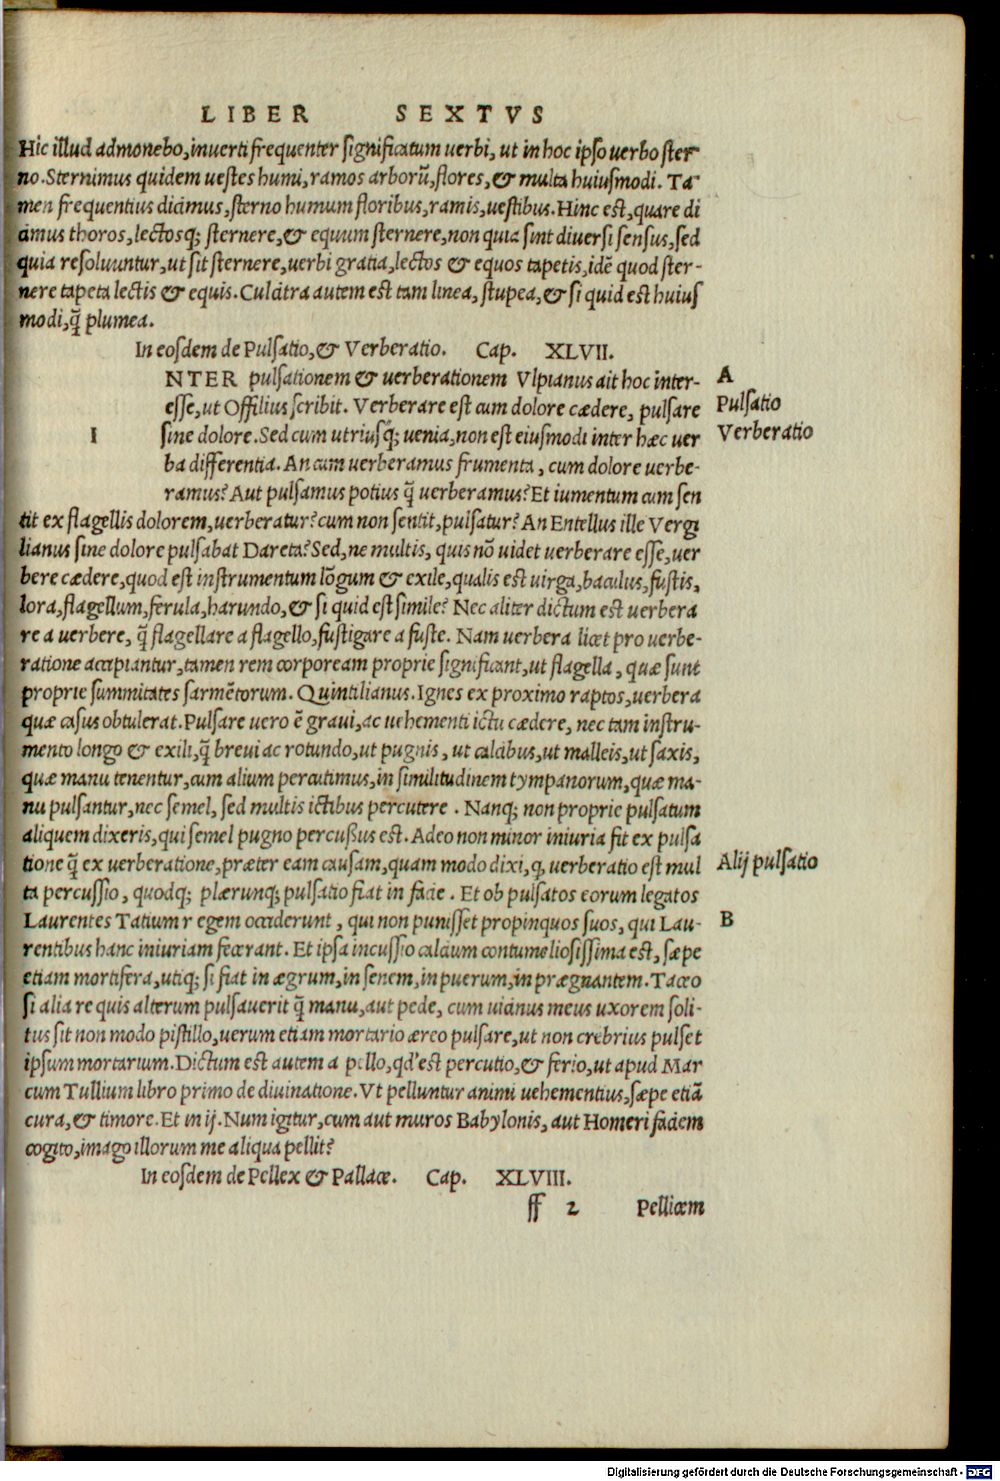 LIBER SEXTVS
Hic illud admonebo,inuerti frequenter significatum uerbi, ut in hoc ipso uerbo ster-
no.Sternimus quidem uestes humi,ramos arborū,flores,& multa huiusmodi. Ta-
men frequentius dicimus,sterno humum floribus,ramis,uestibus.Hinc est,quare di
cimus thoros,lectosq; sternere,& equum sternere,non quia sint diuersi sensus,sed
quia resoluuntur,ut sit sternere,uerbi gratia,lectos & equos tapetis,idē quod ster-
nere tapeta lectis & equis.Culcitra autem est tam linea, stupea,& si quid est huius
modi,q̄ plumea.
In eosdem de Pulsatio,& Verberatio. Cap. XLVII.
I
NTER pulsationem & uerberationem Vlpianus ait hoc inter-
esse,ut Offilius scribit. Verberare est cum dolore cædere, pulsare
sine dolore.Sed cum utriusq́; uenia,non est eiusmodi inter hæc uer
ba differentia. An cum uerberamus frumenta, cum dolore uerbe-
ramus? Aut pulsamus potius q̄ uerberamus? Et iumentum cum sen
tit ex flagellis dolorem,uerberatur? cum non sentit,pulsatur? An Entellus ille Vergi
lianus sine dolore pulsabat Dareta? Sed,ne multis, quis nō uidet uerberare esse,uer
bere cædere,quod est instrumentum lōgum & exile,qualis est uirga,baculus,fustis,
lora,flagellum,ferula,harundo,& si quid est simile? Nec aliter dictum est uerbera
re a uerbere, q̄ flagellare a flagello,fustigare a fuste. Nam uerbera licet pro uerbe-
ratione accipiantur,tamen rem corpoream proprie significant,ut flagella, quæ sunt
proprie summitates sarmētorum. Quintilianus.Ignes ex proximo raptos,uerbera
quæ casus obtulerat.Pulsare uero ē graui,ac uehementi ictu cædere, nec tam instru-
mento longo & exili,q̄ breui ac rotundo,ut pugnis, ut calcibus,ut malleis,ut saxis,
quæ manu tenentur,cum alium percutimus,in similitudinem tympanorum,quæ ma-
nu pulsantur,nec semel, sed multis ictibus percutere. Nanq; non proprie pulsatum
aliquem dixeris,qui semel pugno percußus est. Adeo non minor iniuria fit ex pulsa
tione q̄ ex uerberatione,præter eam causam,quam modo dixi,q, uerberatio est mul
ta percussio, quodq; plærunq; pulsatio fiat in facie. Et ob pulsatos eorum legatos
Laurentes Tatium regem occiderunt, qui non punisset propinquos suos, qui Lau-
rentibus hanc iniuriam fecerant. Et ipsa incussio calcium contumeliosissima est, sæpe
etiam mortifera,utiq; si fiat in ægrum,in senem,in puerum,in prægnantem.Taceo
si alia re quis alterum pulsauerit q̄ manu,aut pede, cum uicinus meus uxorem soli-
tus sit non modo pistillo,uerum etiam mortario æreo pulsare,ut non crebrius pulset
ipsum mortarium.Dictum est autem a pello,qd' est percutio,& ferio,ut apud Mar
cum Tullium libro primo de diuinatione. Vt pelluntur animi uehementius,sæpe etiā
cura,& timore. Et in ij. Num igitur,cum aut muros Babylonis, aut Homeri faciem
cogito,imago illorum me aliqua pellit?
In eosdem de Pellex & Pallace. Cap. XLVIII.
ff 2 Pellicem
A
Pulsatio
Verberatio
Alij pulsatio
B
Digitalisierung gefördert durch die Deutsche Forschungsgemeinschaft - DFG